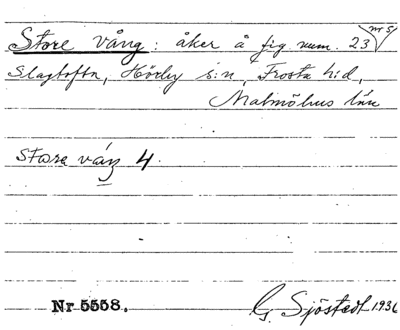 Store vång: åker å fig. num. 23 nr 5
Slagtofta, Hörby s:n, Frosta h:d,
Malmöhus län
store váŋ 4.
Nr 5558.
G. Sjöstedt 1936